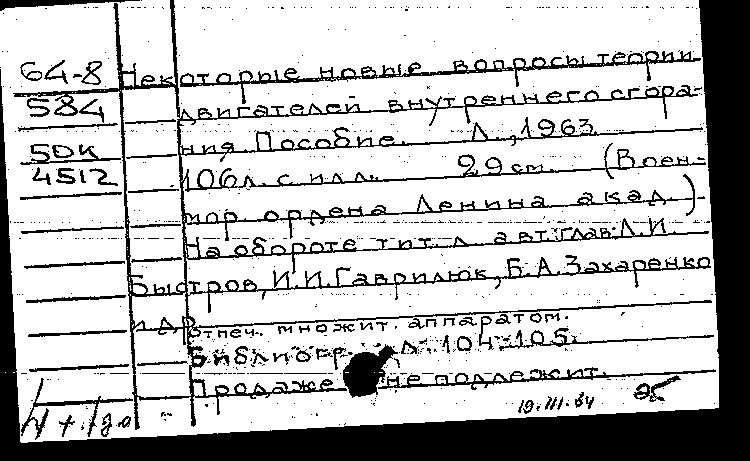 64-8 Некоторые новые вопросы теории
584 двигателей внутреннего сгора-
5DK ния. Пособие. Л., 1963
4512 106л. с илл. 29 см. (Воен-
мор. ордена Ленина акад.)-
На обороте тит. л. авт. глав: Л.И.
Быстров, И.И. Гаврилюк, Б.А. Захаренко
и др.
Отпеч. множит. аппаратом.
Библиогр. л. 104-105.
Продаже не подлежит.
19.III.64